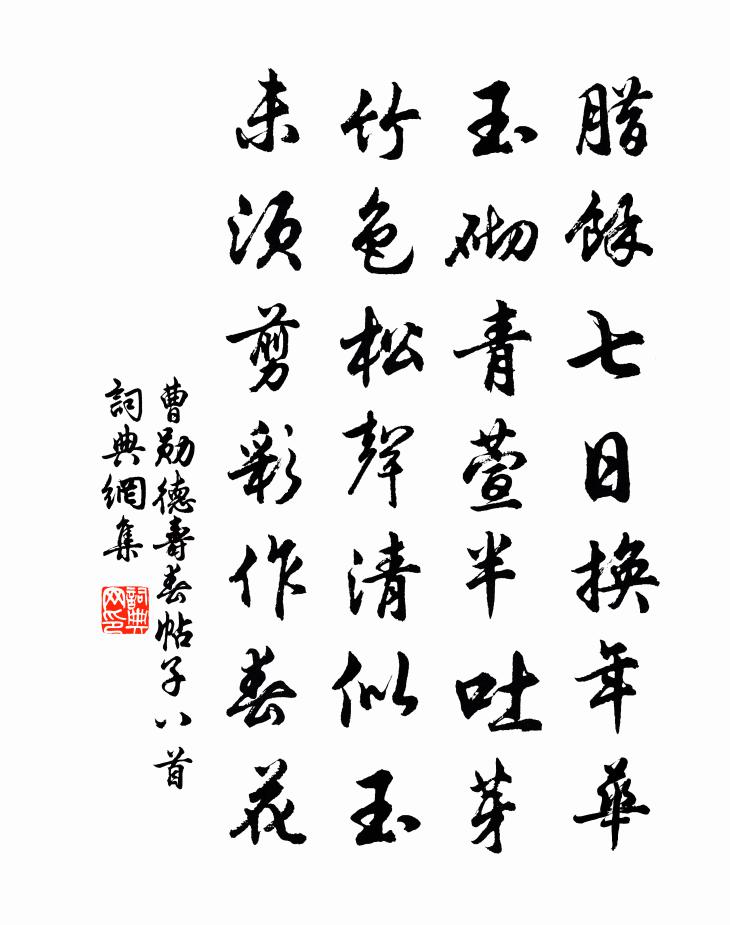 腊餘七日換年華
玉砌青萱半吐芽
竹色松聲清似玉
未須剪彩作春花
曹勛德壽春帖子八首
詞典網集
詞典网印